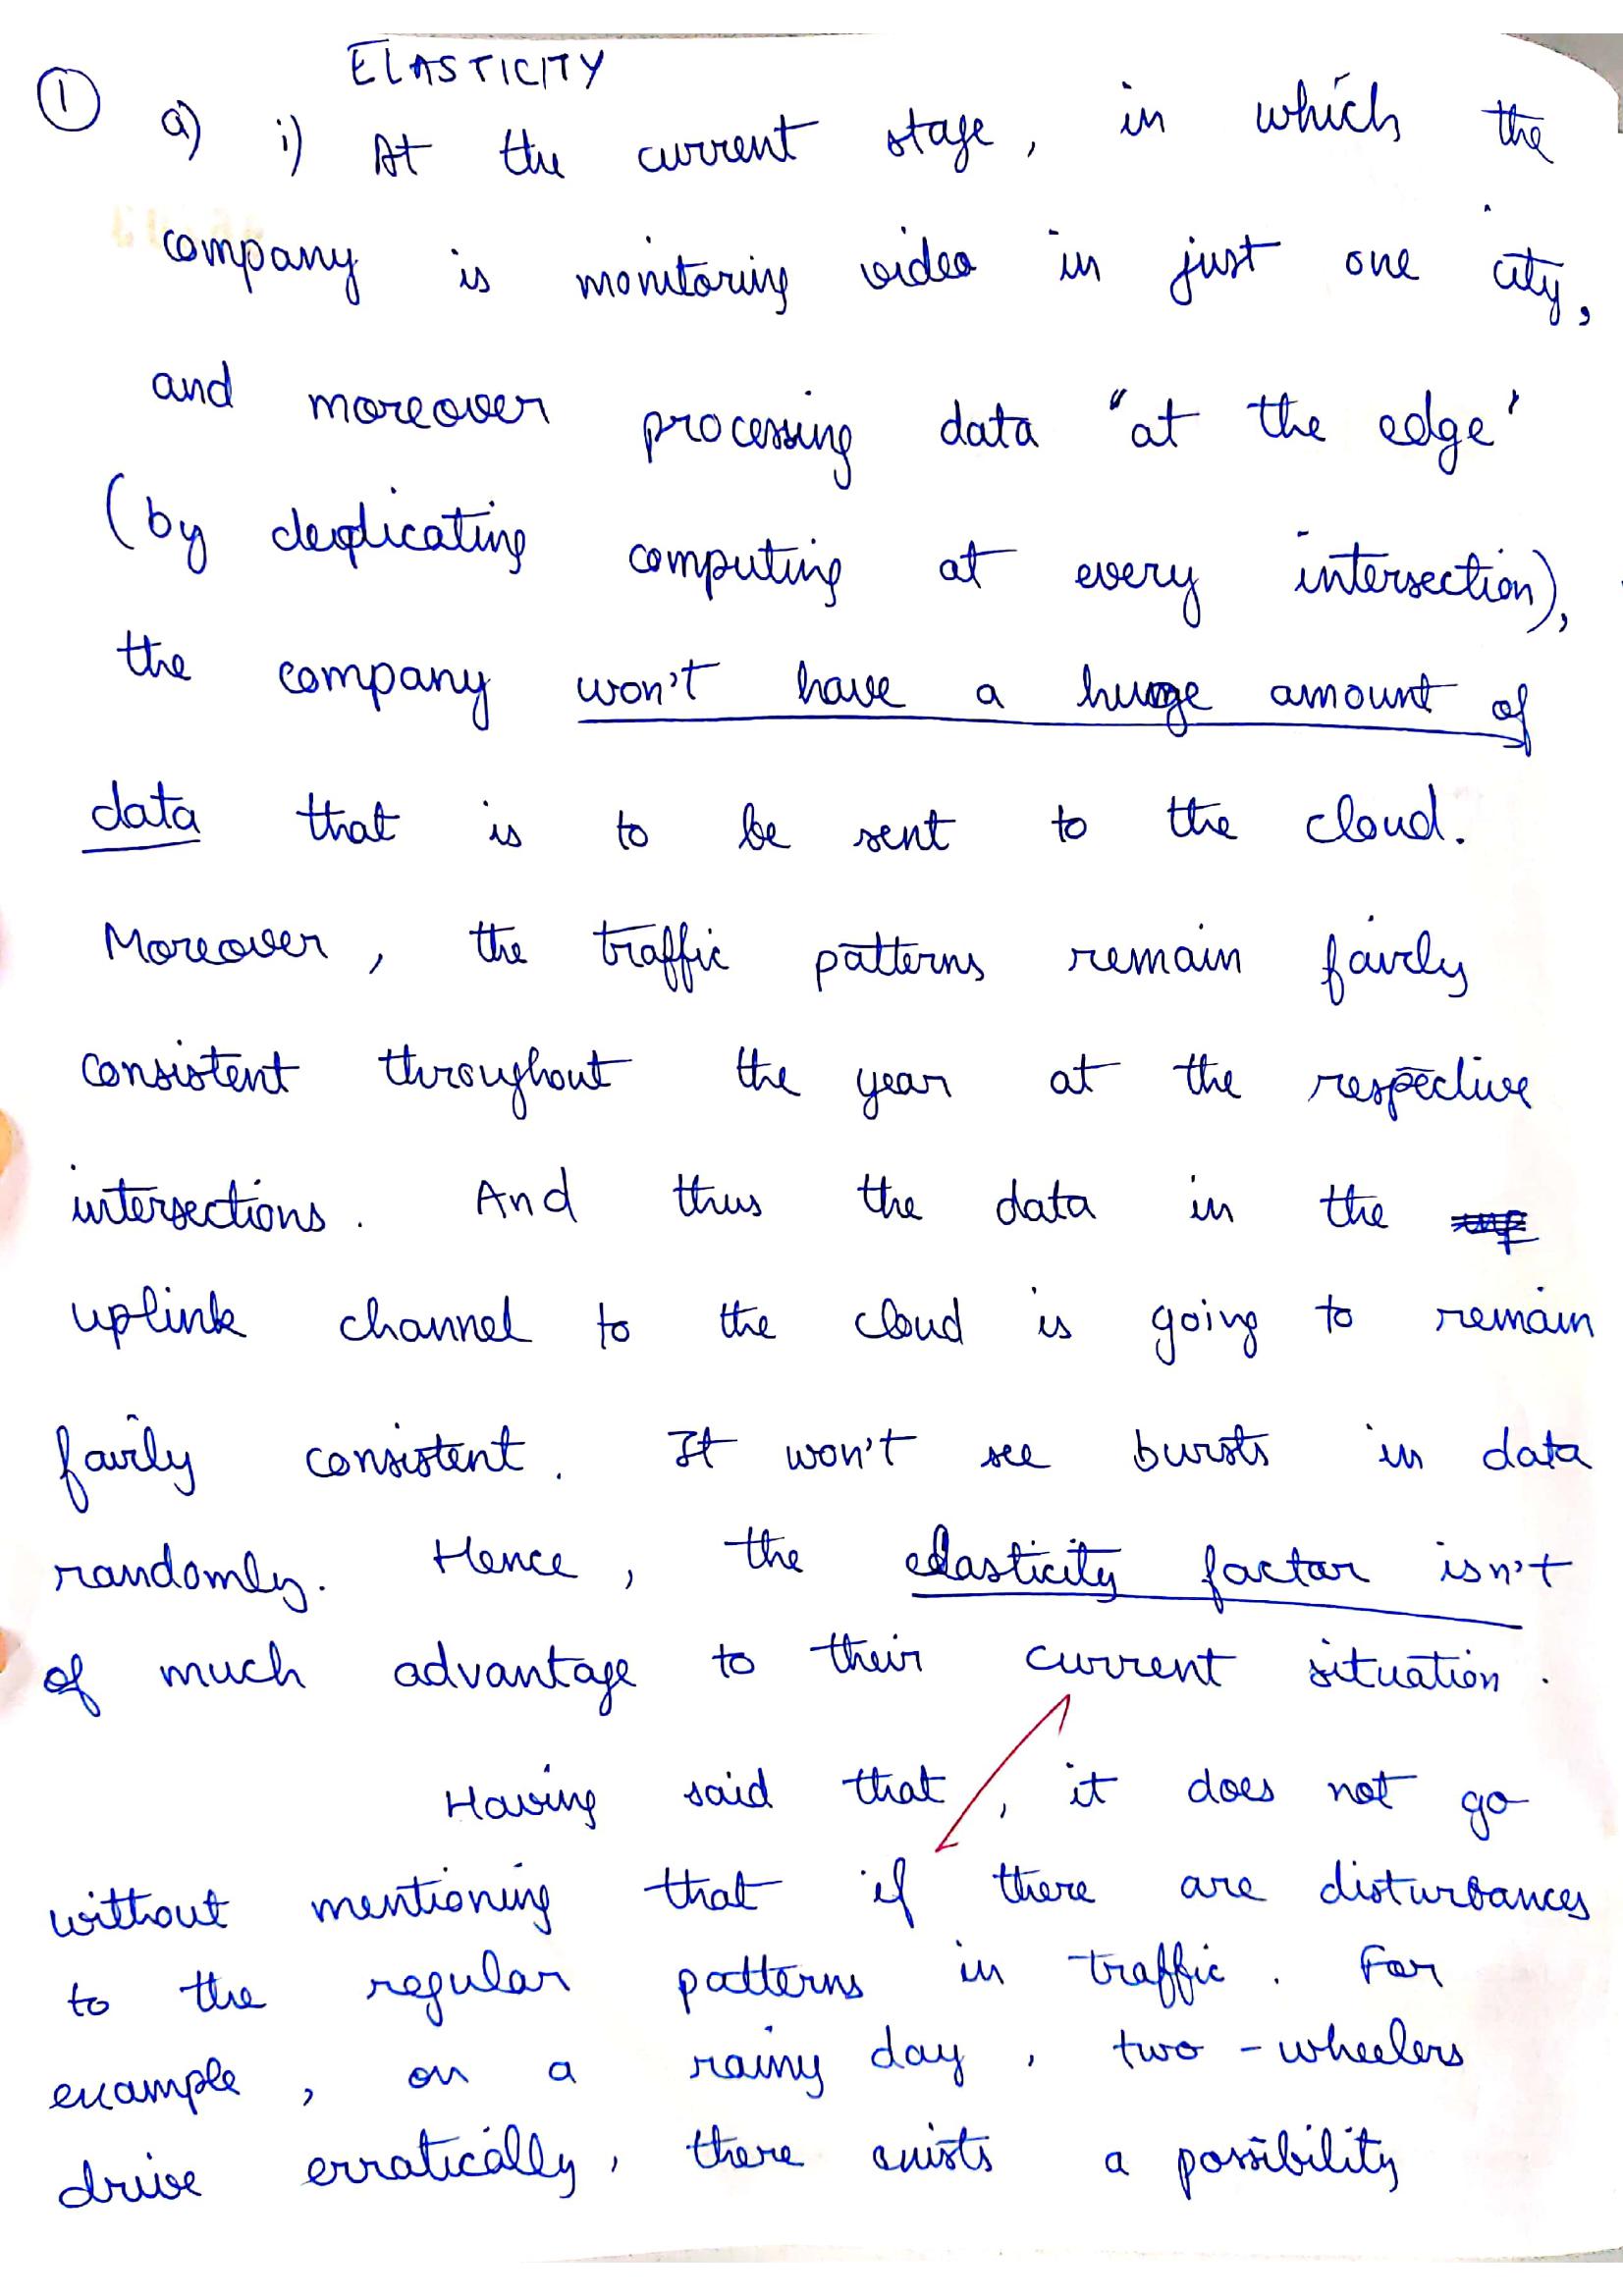 ELASTICITY
1 a) i) At the current stage, in which the
company is monitoring video in just one city,
and moreover processing data "at the edge'
(by deplicating computing at every intersection),
the company won't have a huge amount of
data that is to be sent to the cloud.
Moreover, the traffic patterns remain fairly
consistent throughout the year at the respective
intersections. And thus the data in the
uplink channel to the cloud is going to remain
fairly consistent. It won't see bursts in data
randomly. Hence, the elasticity factor isn't
of much advantage to their current situation.
Having said that, it does not go
without mentioning that if there are disturbances
to the regular patterns in traffic. For
example, on a rainy day, two-wheelers
drive erratically, there exists a possibility